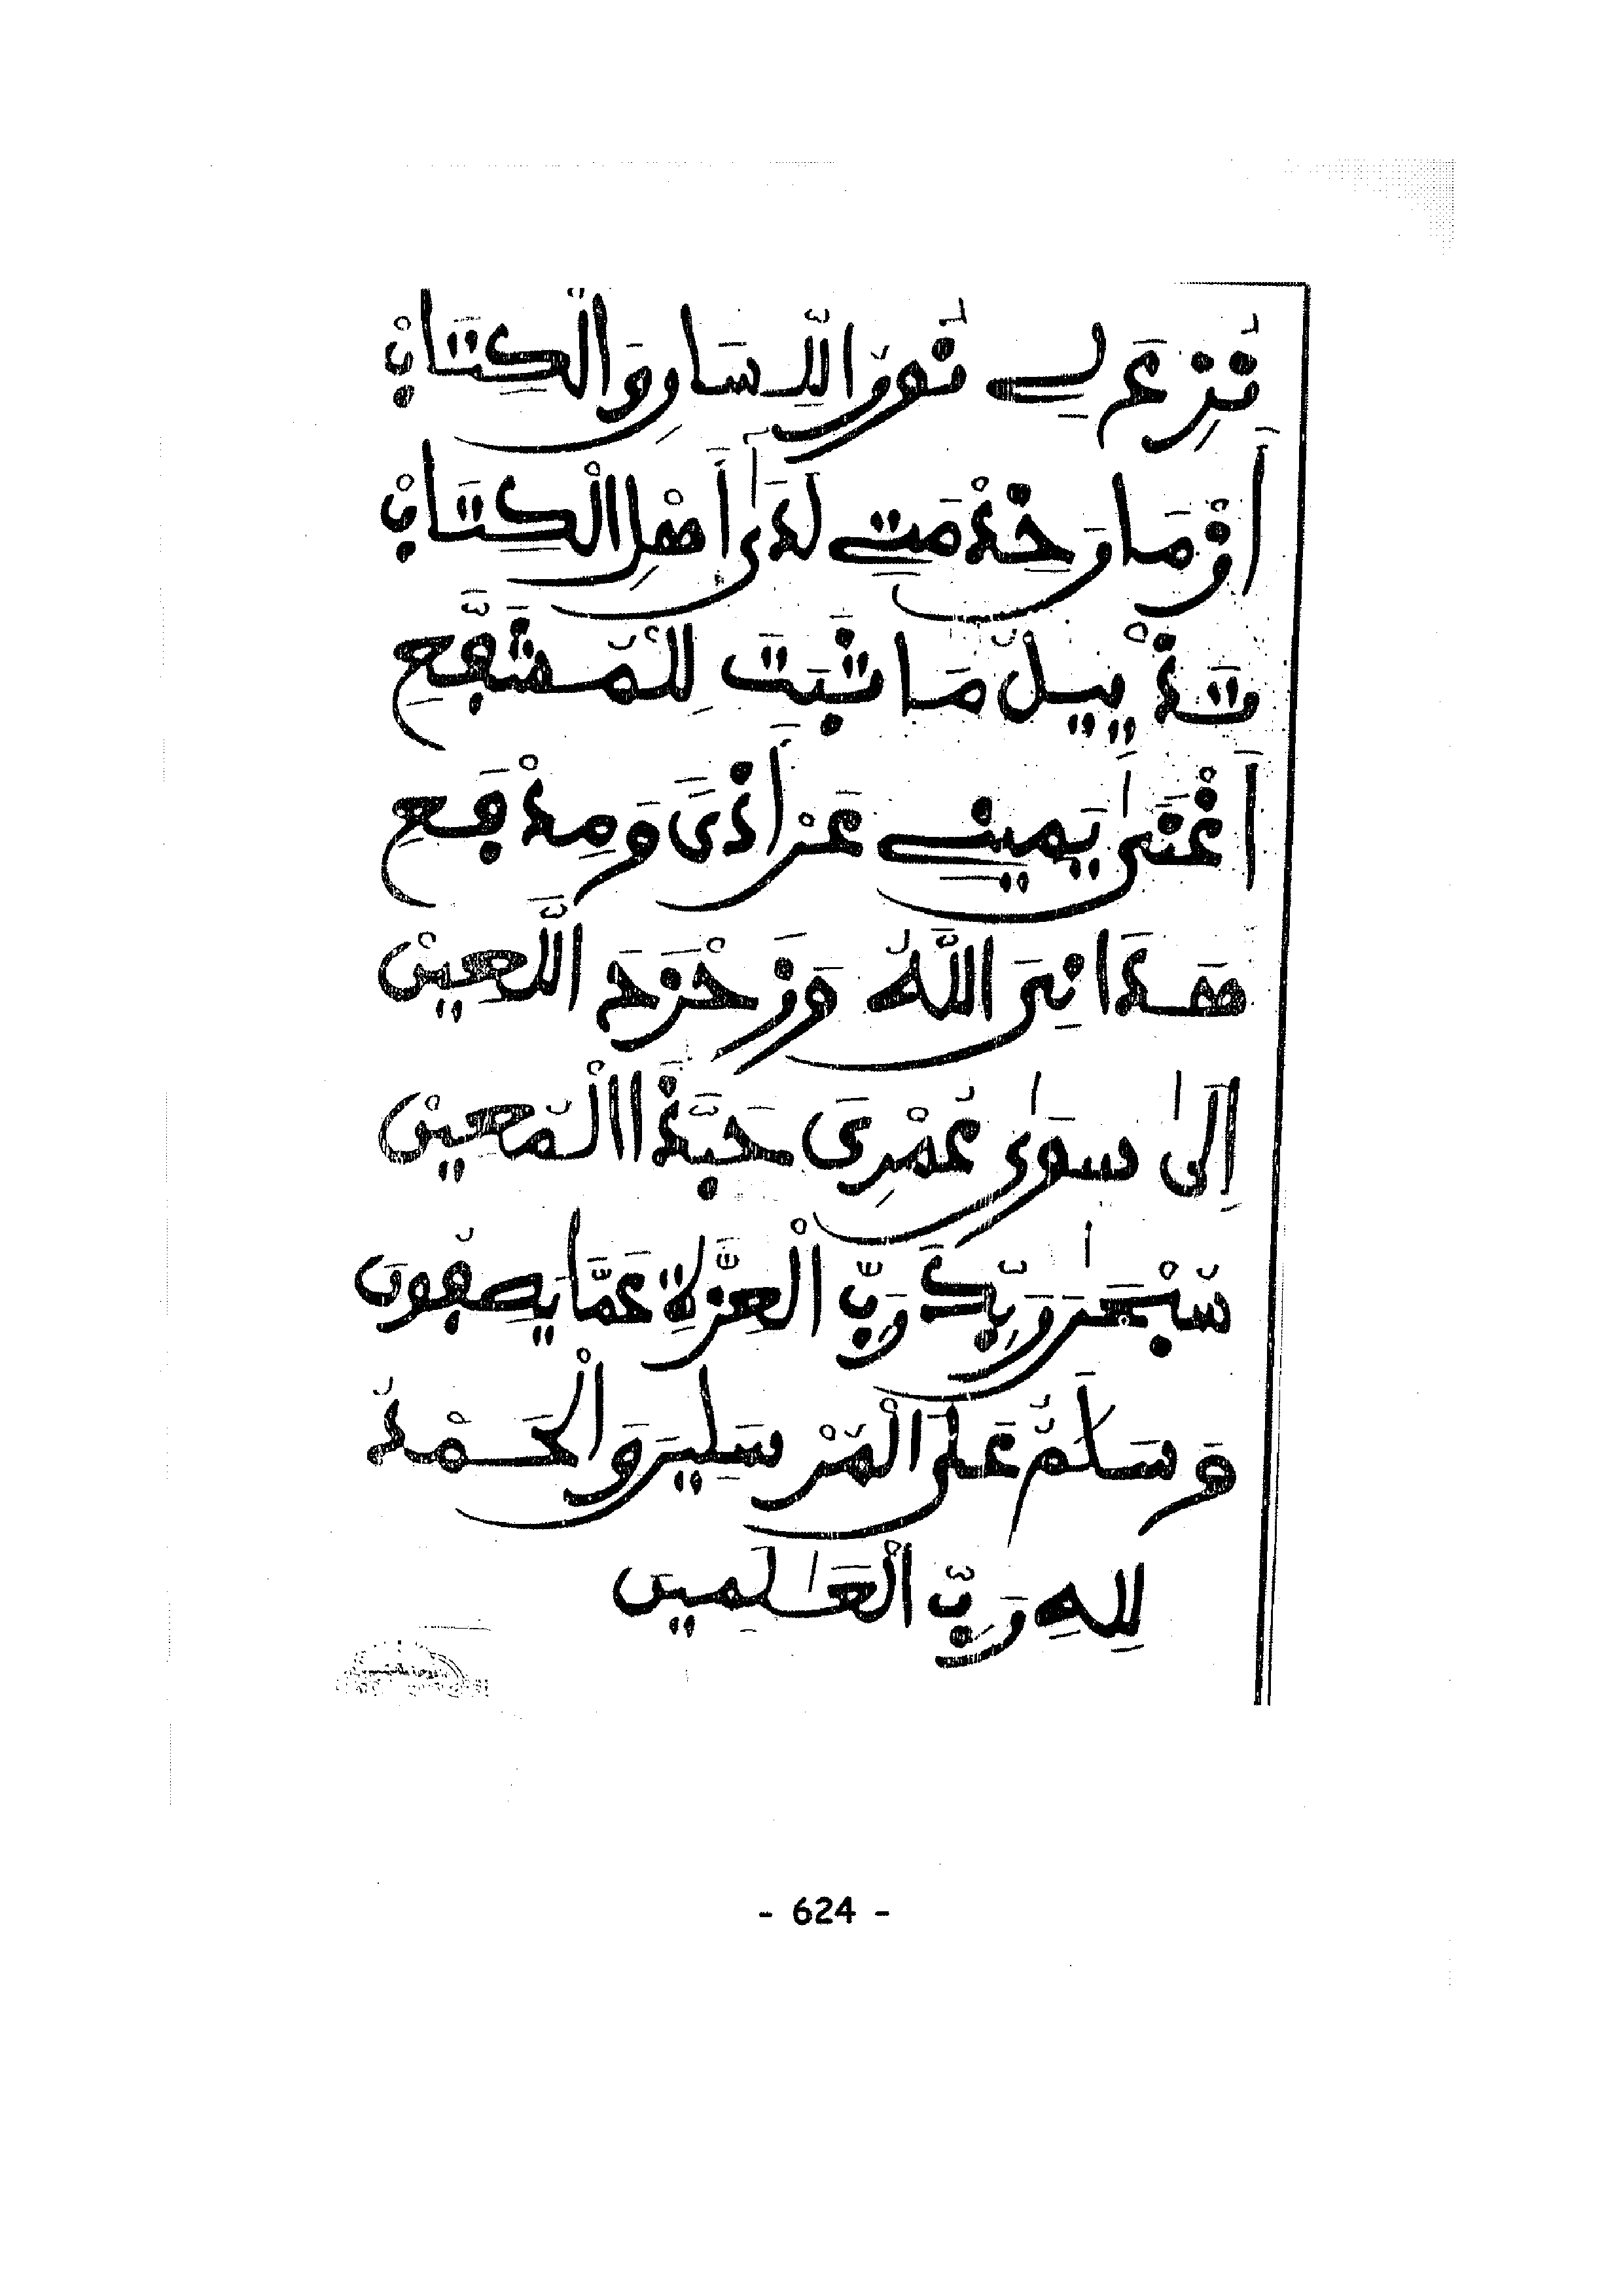 نُزِعَ لِے نُورُ الدِّسَارِ وَالْكِتَابْ
أَوْمَا وَخِدْمَتِے لَدَىٰ أَهْلِ الْكِتَابْ
تَذْيِيلُ مَا ثَبَتَ لِلْمُشَفَّعِ
أَغْنَىٰ يَمِينِے عَنْ أَذًى وَمِدْفَعِ
هَدَانِىَ اللَّهُ وَزَحْزَحَ اللَّعِينْ
إِلىٰ سِوَىٰ عُمْرِىَ حَبَّذَا الْمُعِينْ
سُبْحَٰنَ رَبِّكَ رَبِّ الْعِزَّةِ عَمَّا يَصِفُونَ
وَسَلَٰمٌ عَلَى الْمُرْسَلِينَ وَالْحَمْدُ
لِلهِ رَبِّ الْعَٰلَمِينَ
- 624 -